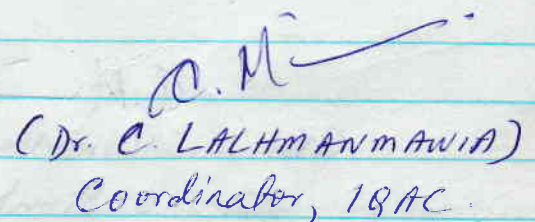 C. M
(Dr. C. LALHMANMAWIA)
Coordinator, IQAC.